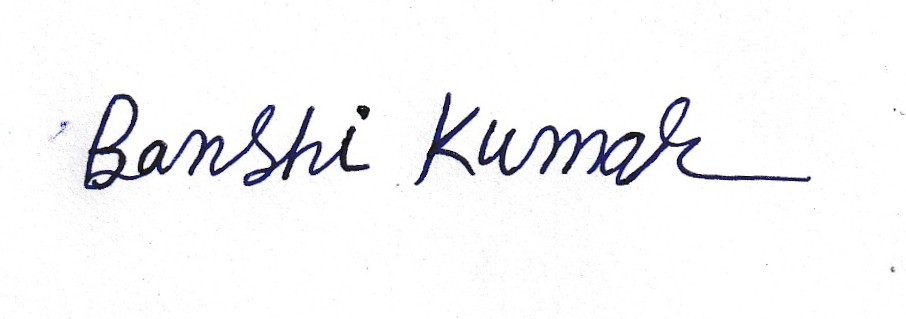 Banshi Kumar